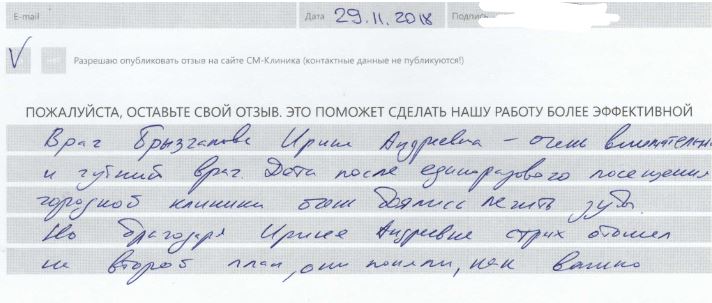 E-mail Дата 29.11.2018 Подпись
V Разрешаю опубликовать отзыв на сайте СМ-Клиника (контактные данные не публикуются!)
ПОЖАЛУЙСТА, ОСТАВЬТЕ СВОЙ ОТЗЫВ. ЭТО ПОМОЖЕТ СДЕЛАТЬ НАШУ РАБОТУ БОЛЕЕ ЭФФЕКТИВНОЙ
Врач Брызгалова Ирина Андреевна – очень внимательн
и чуткий врач. Дети после единоразового посещения
городской клиники очень боялись лечить зубы.
Но благодаря Ирине Андреевне страх отошел
на второй план, они поняли, как важно